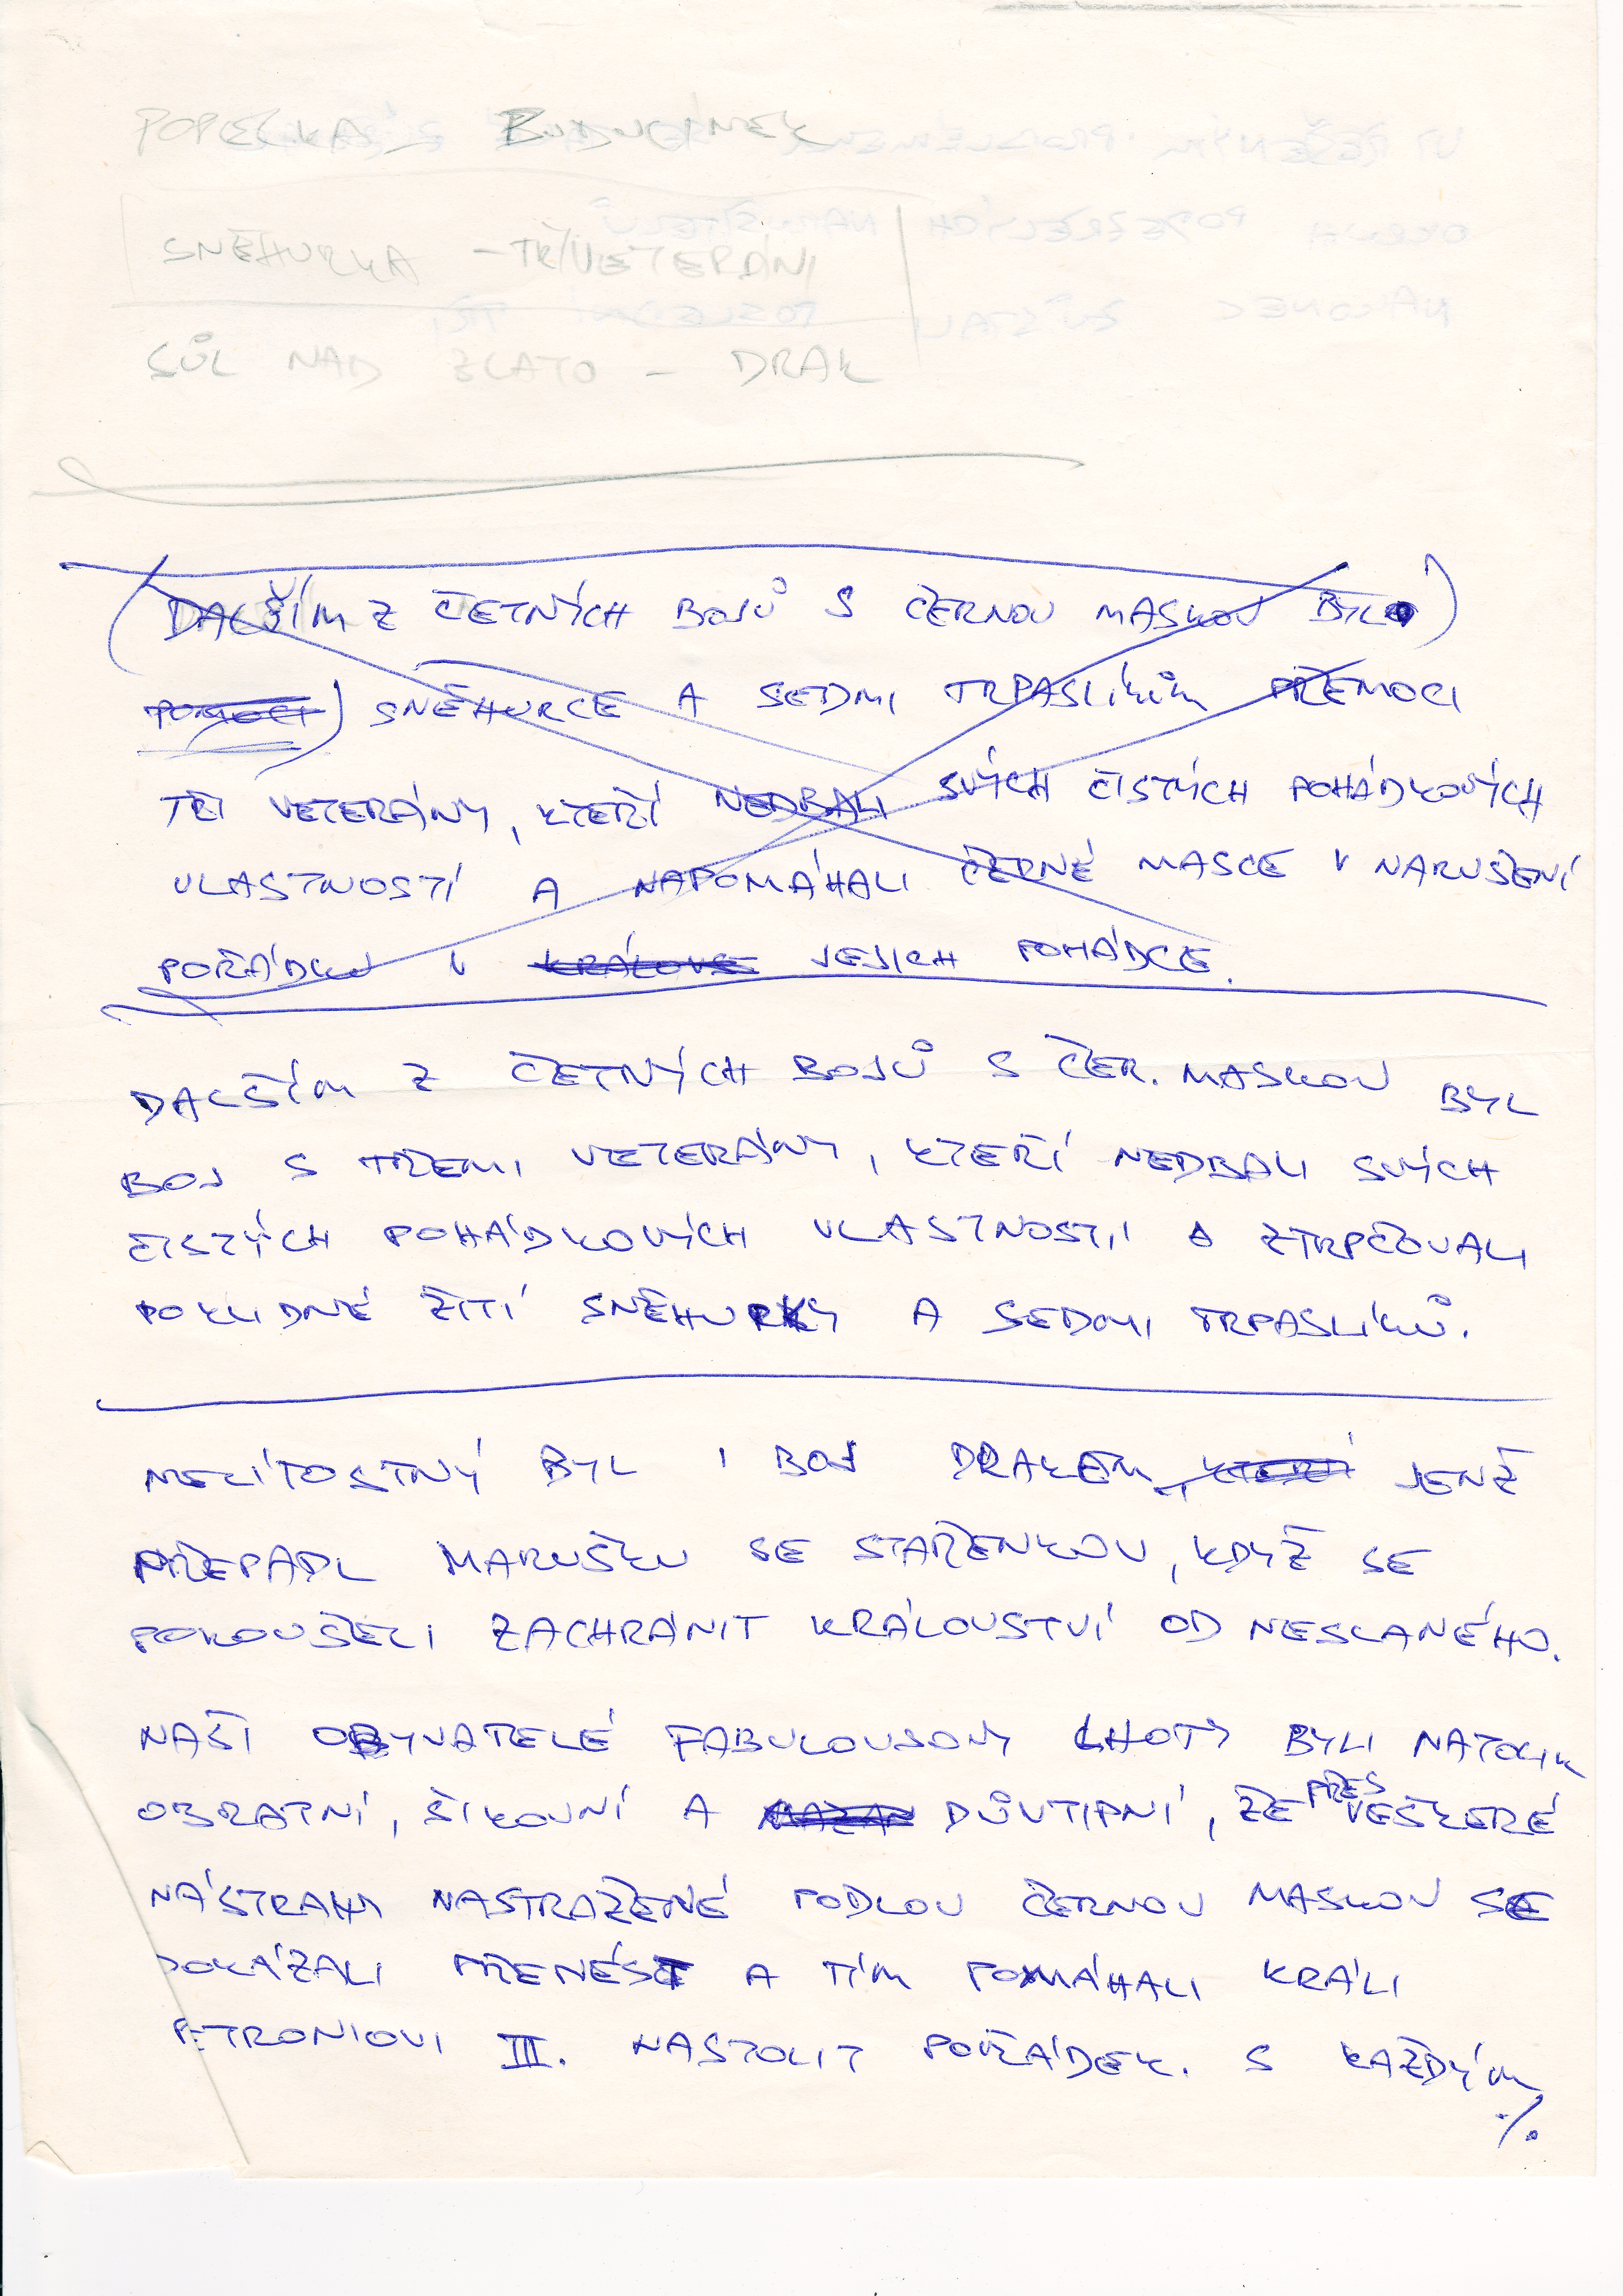 POPELKA, BUDULÍNEK
SNĚHURKA – TŘI VETERÁNI
SŮL NAD ZLATO – DRAK
(DALŠÍM Z ČETNÝCH BOJŮ S ČERNOU MASKOU BYLO)
POMOCI) SNĚHURCE A SEDMI TRPASLÍKŮM PŘEMOCI
TŘI VETERÁNY, KTEŘÍ NEDBALI SVÝCH ČISTÝCH POHÁDKOVÝCH
VLASTNOSTÍ A NAPOMÁHALI ČERNÉ MASCE V NARUŠENÍ
POŘÁDKU V KRÁLOVS JEJICH POHÁDCE.
DALŠÍM Z ČETNÝCH BOJŮ S ČER. MASKOU BYL
BOJ S TŘEMI VETERÁNY, KTEŘÍ NEDBALI SVÝCH
ČISTÝCH POHÁDKOVÝCH VLASTNOSTÍ A ZTRPČOVALI
POKLIDNÉ ŽITÍ SNĚHURKY A SEDMI TRPASLÍKŮ.
NELÍTOSTNÝ BYL I BOJ DRAKEM, KTERÝ JENŽ
PŘEPADL MARUŠKU SE STAŘENKOU, KDYŽ SE
POKOUŠELI ZACHRÁNIT KRÁLOVSTVÍ OD NESLANÉHO.
NAŠI OBYVATELÉ FABULOUSONY LHOTY BYLI NATOLIK
OBRATNÍ, ŠIKOVNÍ A DŮVTIPNÍ, ŽE PŘES VEŠKERÉ
NÁSTRAHY NASTRAŽENÉ PODLOU ČERNOU MASKOU SE
DOKÁZALI PŘENÉST A TÍM POMÁHALI KRÁLI
PETRONIOVI III. NASTOLIT POŘÁDEK. S KAŽDÝM
./.